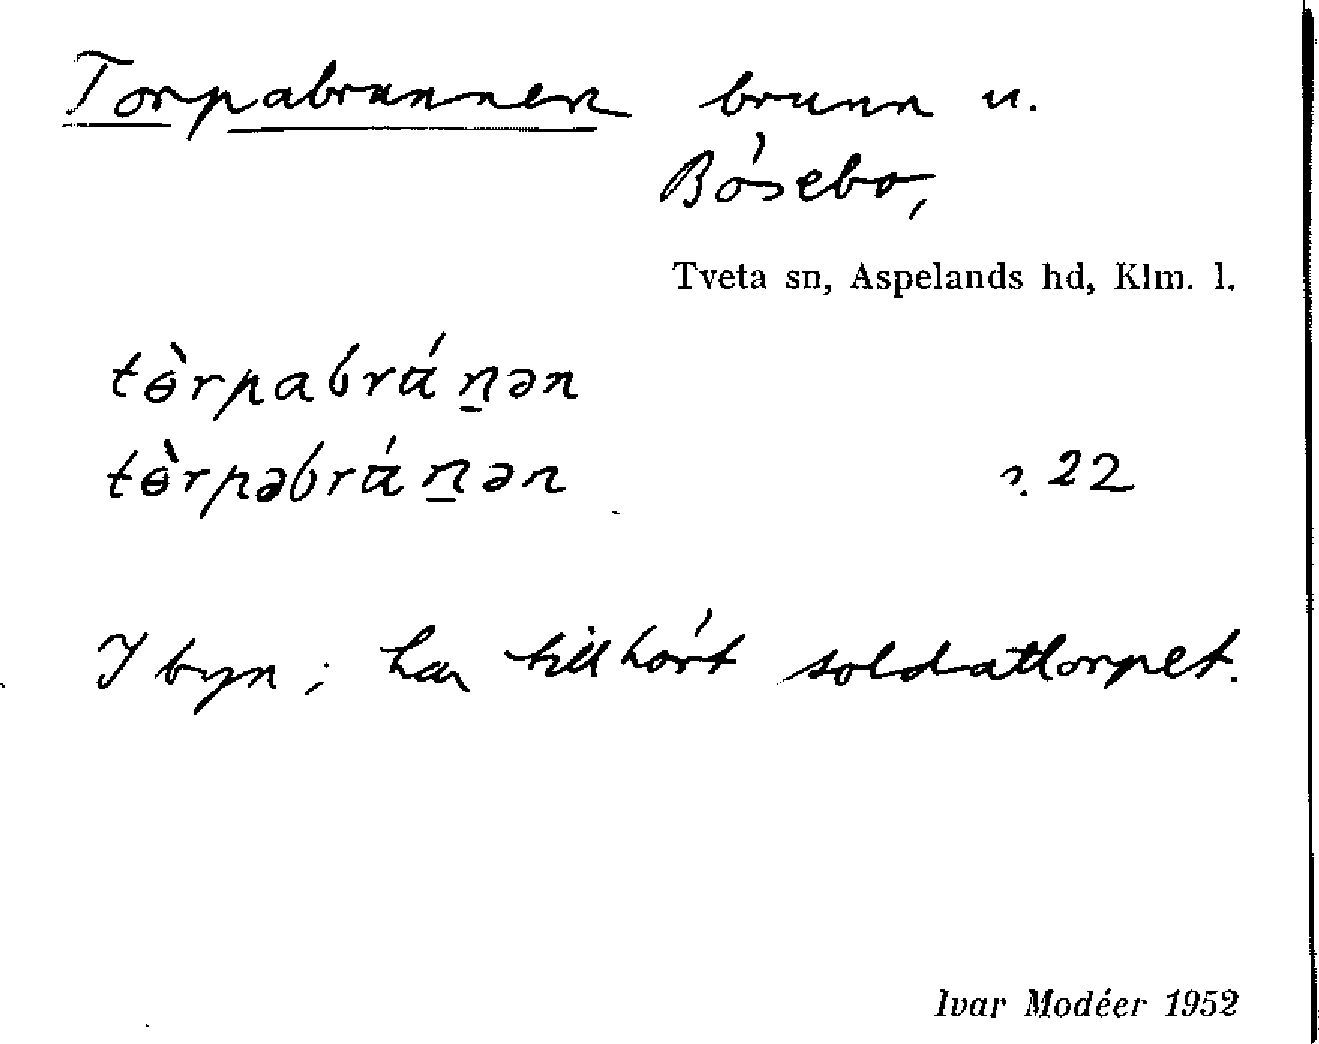 Torpabrunnen brunn u.
Bösebo,
Tveta sn, Aspelands hd, Klm. l.
tɵ̀rpabrá n̲ən
tɵ̀rpəbrá n̲ən s. 22
I byn; har tillhört soldattorpet.
Ivar Modéer 1952